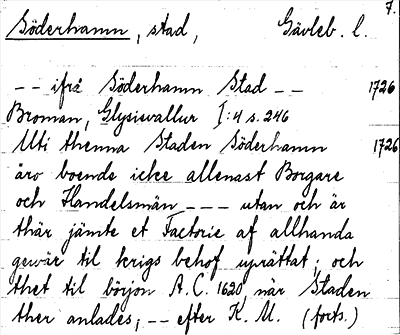 7.
Söderhamn, stad, Gävleb. l.
-- ifrå Söderhamn Stad -- 1726
Broman, Glysisvallur I:4 s. 246
Uti thenna Staden Söderhamn 1726
äro boende icke allenast Borgare
och Handelsmän --- utan och är
thär jämte et Factorie af allhanda
gewär til krigs behof uprättat; och
thet til börjon A.C. 1620 när Staden
ther anlades, -- efter K. M. (forts.)